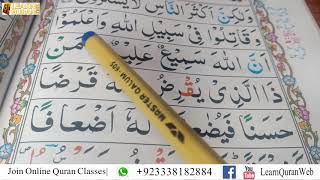 وَلٰكِنَّ اَكْثَرَ النَّاسِ لَا يَشْكُرُوْنَ
وَقَاتِلُوْا فِيْ سَبِيْلِ اللّٰهِ وَاعْلَمُوْٓا
اَنَّ اللّٰهَ سَمِيْعٌ عَلِيْمٌ مَنْ
ذَا الَّذِيْ يُقْرِضُ اللّٰهَ قَرْضًا
حَسَنًا فَيُضٰعِفَهٗ لَهٗٓ اَضْعَافًا
MASTER DACUM 105
Join Online Quran Classes| +923338182884 LearnQuranWeb